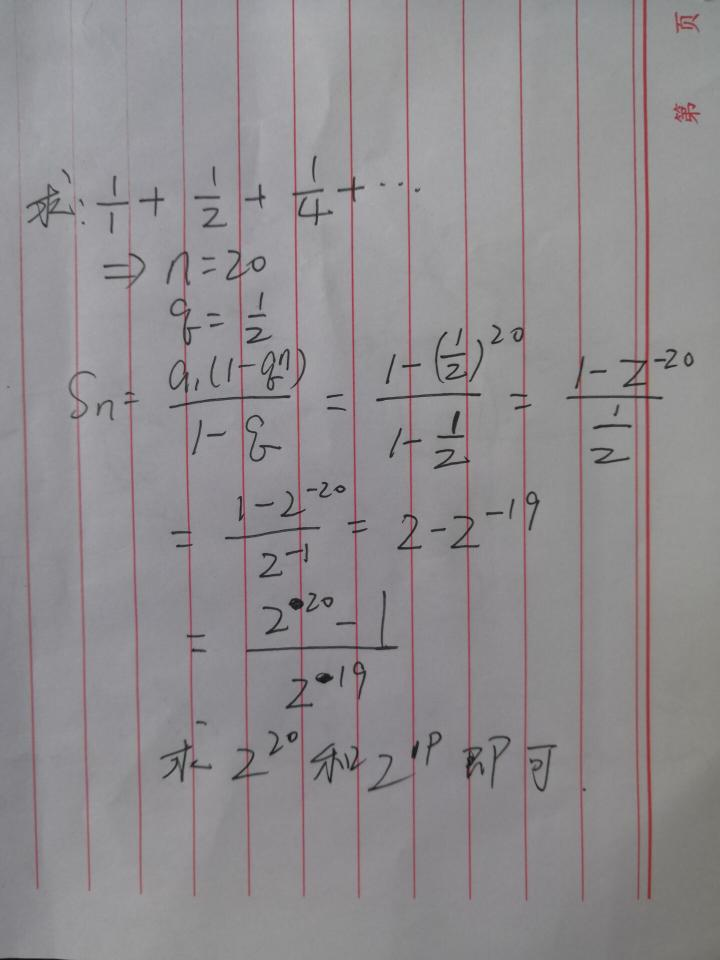 第 页
求: 1/1 + 1/2 + 1/4 + ...
⇒ n=20
q = 1/2
Sn = a₁(1-qⁿ)/(1-q) = (1-(1/2)²⁰)/(1-1/2) = (1-2⁻²⁰)/(1/2)
= (1-2⁻²⁰)/2⁻¹ = 2-2⁻¹⁹
= (2²⁰-1)/2¹⁹
求 2²⁰ 和 2¹⁹ 即可.